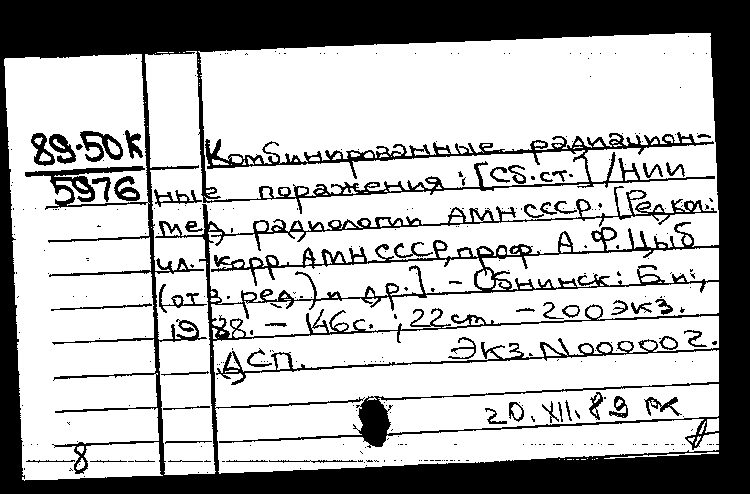 89-50К
5976
Комбинированные радиацион-
ные поражения: [Сб.ст.] / НИИ
мед. радиологии АМН СССР; [Редкол.:
чл.-корр. АМН СССР, проф. А.Ф. Цыб
(отв. ред.) и др.]. - Обнинск: Б.и.,
1988. - 146с.; 22см. - 200 экз.
ДСП. Экз. N 000002.
20.XII.89
8